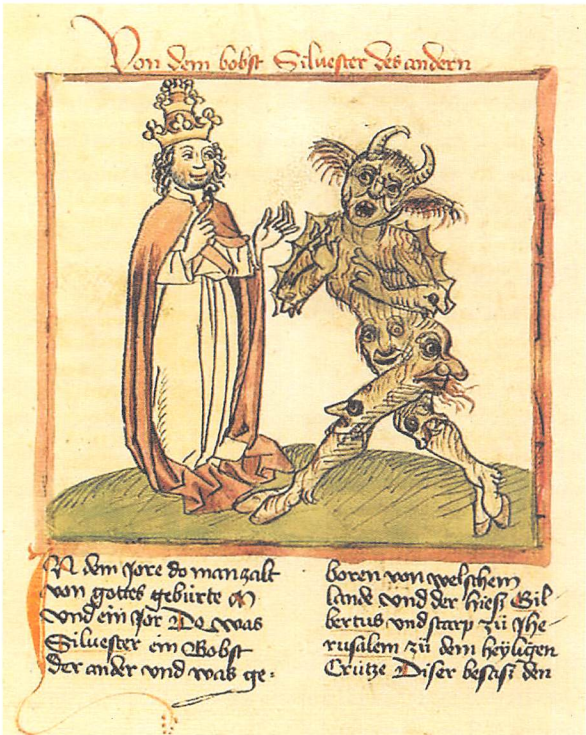 Von dem bobst Siluester des andern
N dem Jore do man zalt
von gottes gebürte M
vnd ein Jor Do was
Siluester ein Bobst
der ander vnd was ge-
boren von welschem
lande vnd der hieß Gil
bertus vnd starp zů Jhe-
rusalem zů dem heyligen
Crütze Diser besaß den